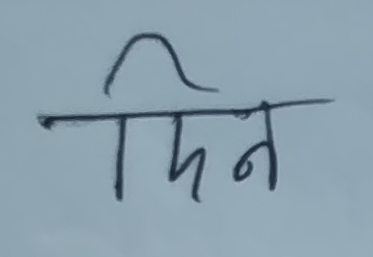 दिन